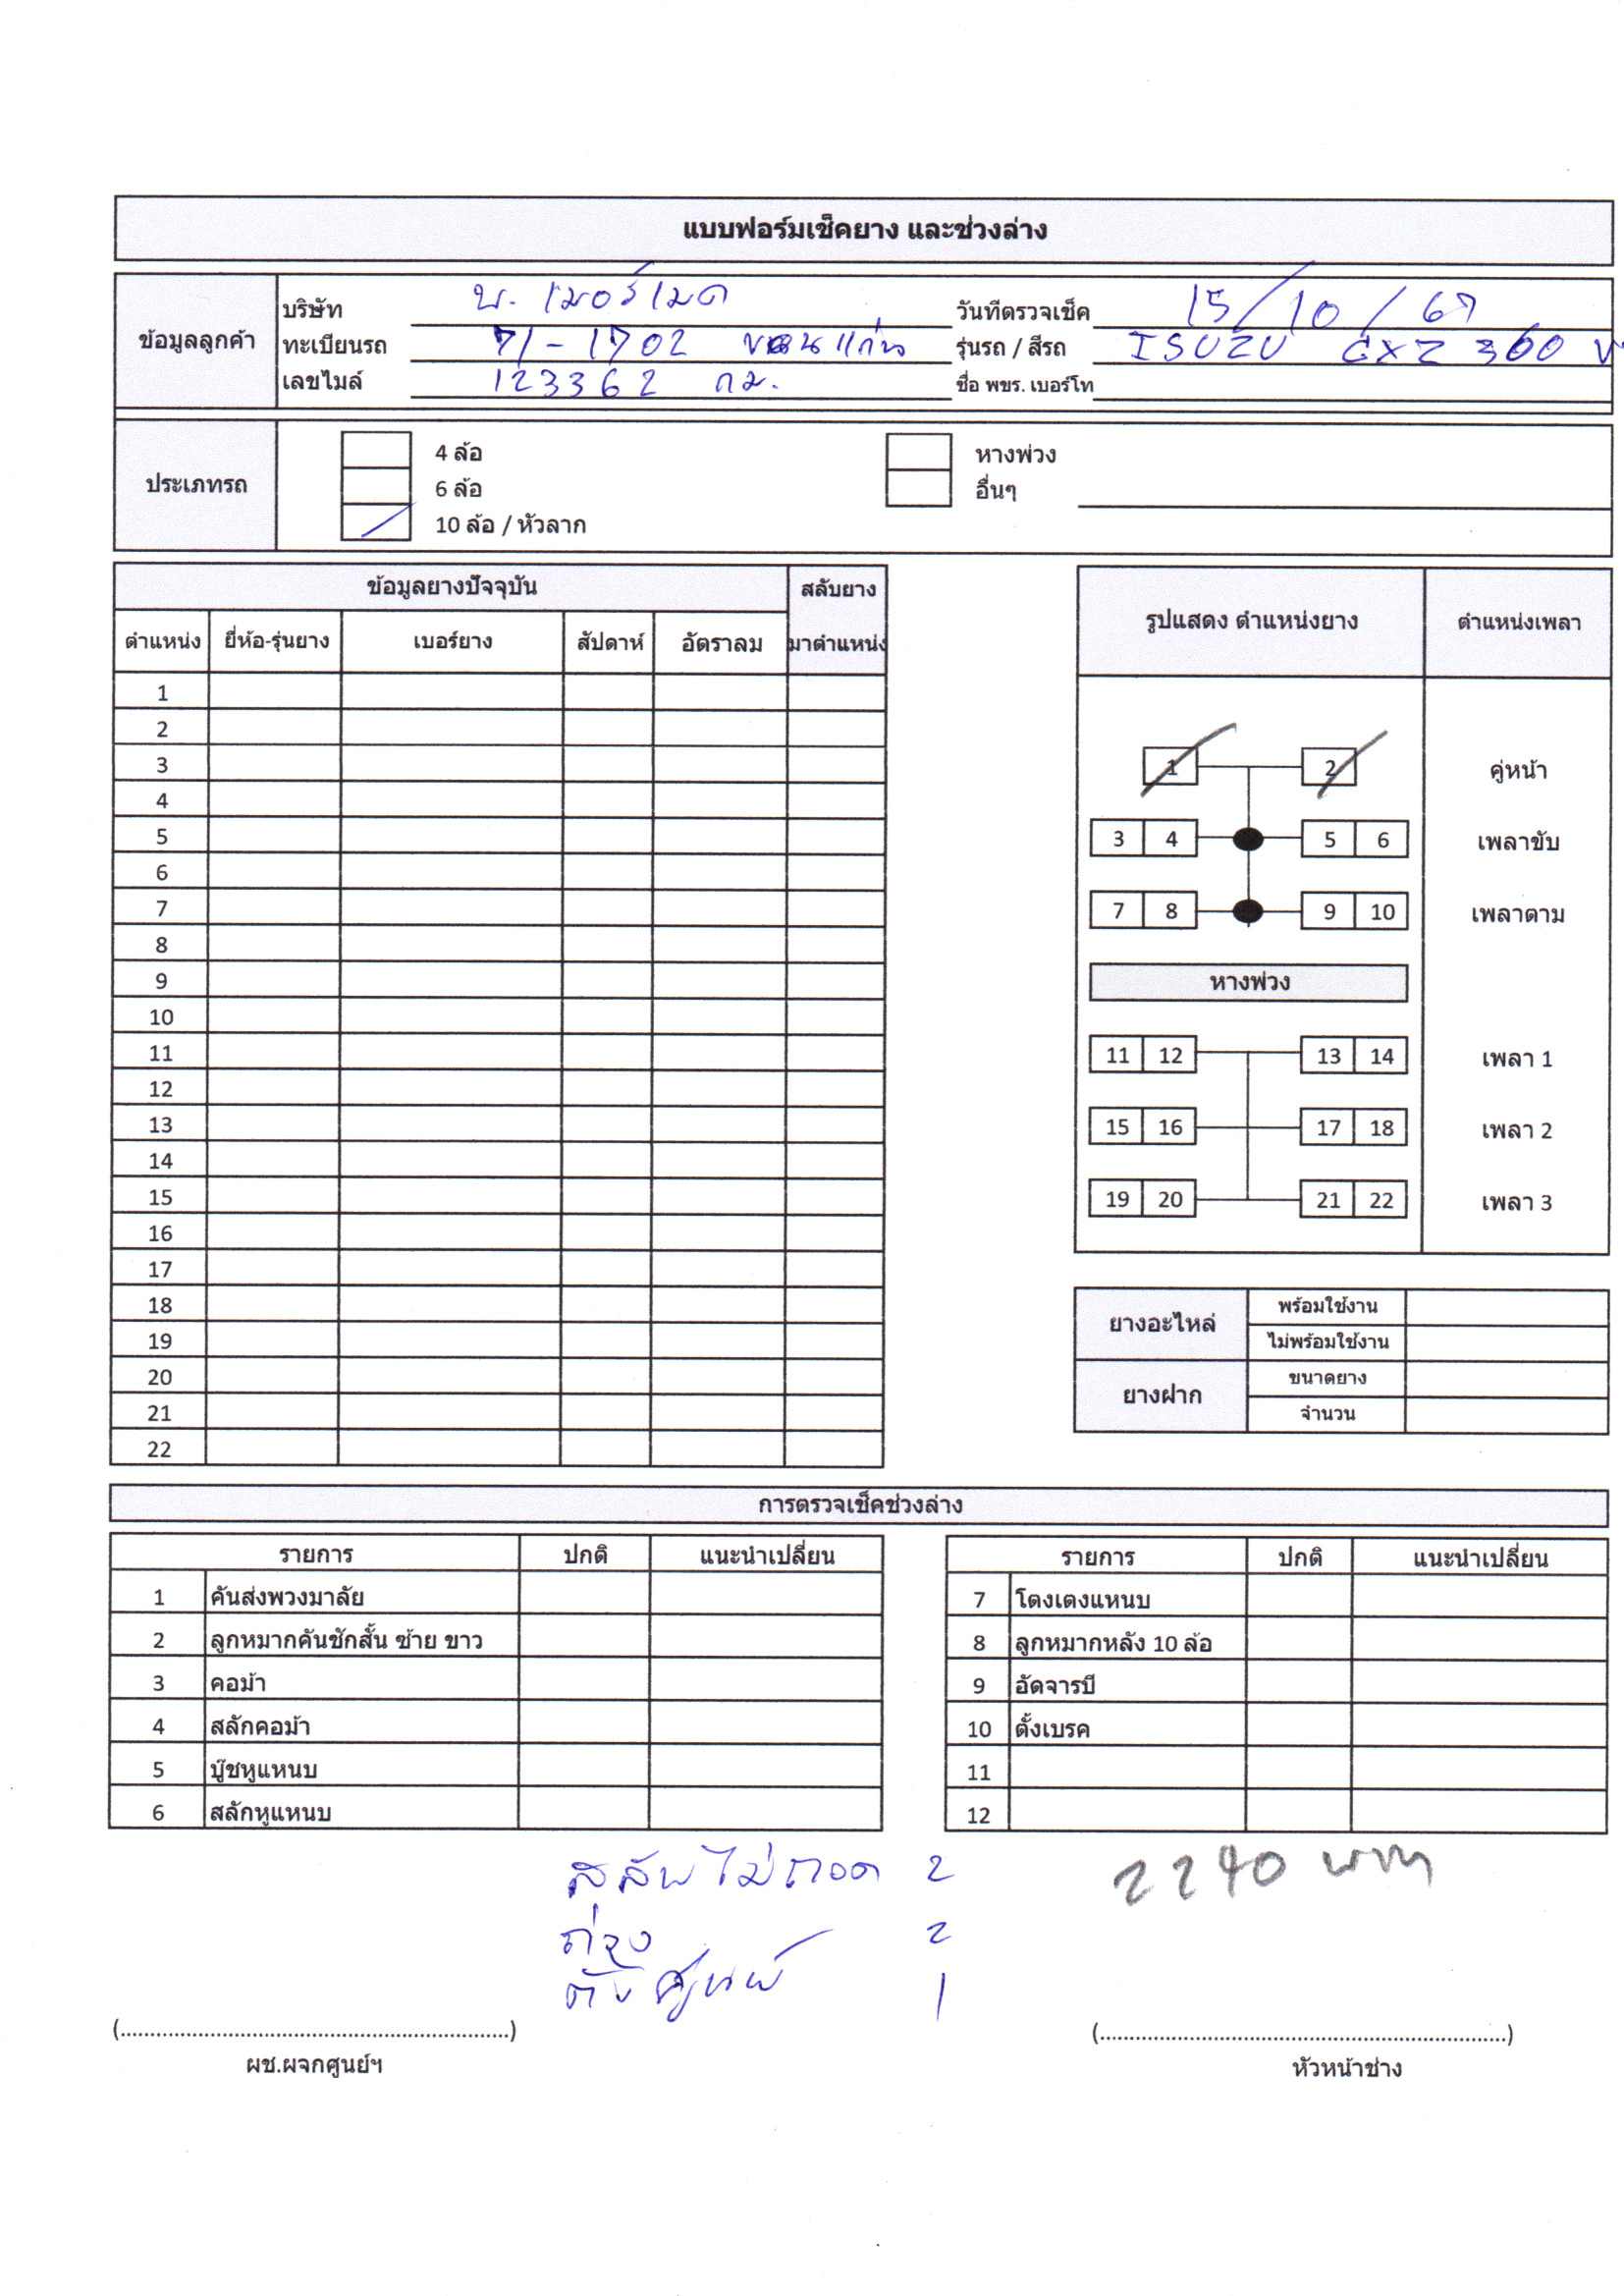 แบบฟอร์มเช็คยาง และช่วงล่าง
ข้อมูลลูกค้า
บริษัท บ. เมอร์เมด วันที่ตรวจเช็ค 15/10/67
ทะเบียนรถ 71-1702 ขอนแก่น รุ่นรถ / สีรถ ISUZU GXZ 360
เลขไมล์ 123362 กม. ชื่อ พขร. เบอร์โท
ประเภทรถ
4 ล้อ หางพ่วง
6 ล้อ อื่นๆ
10 ล้อ / หัวลาก
ข้อมูลยางปัจจุบัน สลับยาง
ตำแหน่ง ยี่ห้อ-รุ่นยาง เบอร์ยาง สัปดาห์ อัตราลม มาตำแหน่ง
1
2
3
4
5
6
7
8
9
10
11
12
13
14
15
16
17
18
19
20
21
22
รูปแสดง ตำแหน่งยาง ตำแหน่งเพลา
1 2 คู่หน้า
3 4 5 6 เพลาขับ
7 8 9 10 เพลาตาม
หางพ่วง
11 12 13 14 เพลา 1
15 16 17 18 เพลา 2
19 20 21 22 เพลา 3
ยางอะไหล่ พร้อมใช้งาน
ไม่พร้อมใช้งาน
ยางฝาก ขนาดยาง
จำนวน
การตรวจเช็คช่วงล่าง
รายการ ปกติ แนะนำเปลี่ยน
1 คันส่งพวงมาลัย
2 ลูกหมากคันชักสั้น ซ้าย ขาว
3 คอม้า
4 สลักคอม้า
5 บู๊ชหูแหนบ
6 สลักหูแหนบ
รายการ ปกติ แนะนำเปลี่ยน
7 โตงเตงแหนบ
8 ลูกหมากหลัง 10 ล้อ
9 อัดจารบี
10 ตั้งเบรค
11
12
สลับไม่ถอด 2 2240 บาท
ถ่วง 2
ตั้งศูนย์ 1
(..................................................................)
ผช.ผจกศูนย์ฯ
(......................................................................)
หัวหน้าช่าง